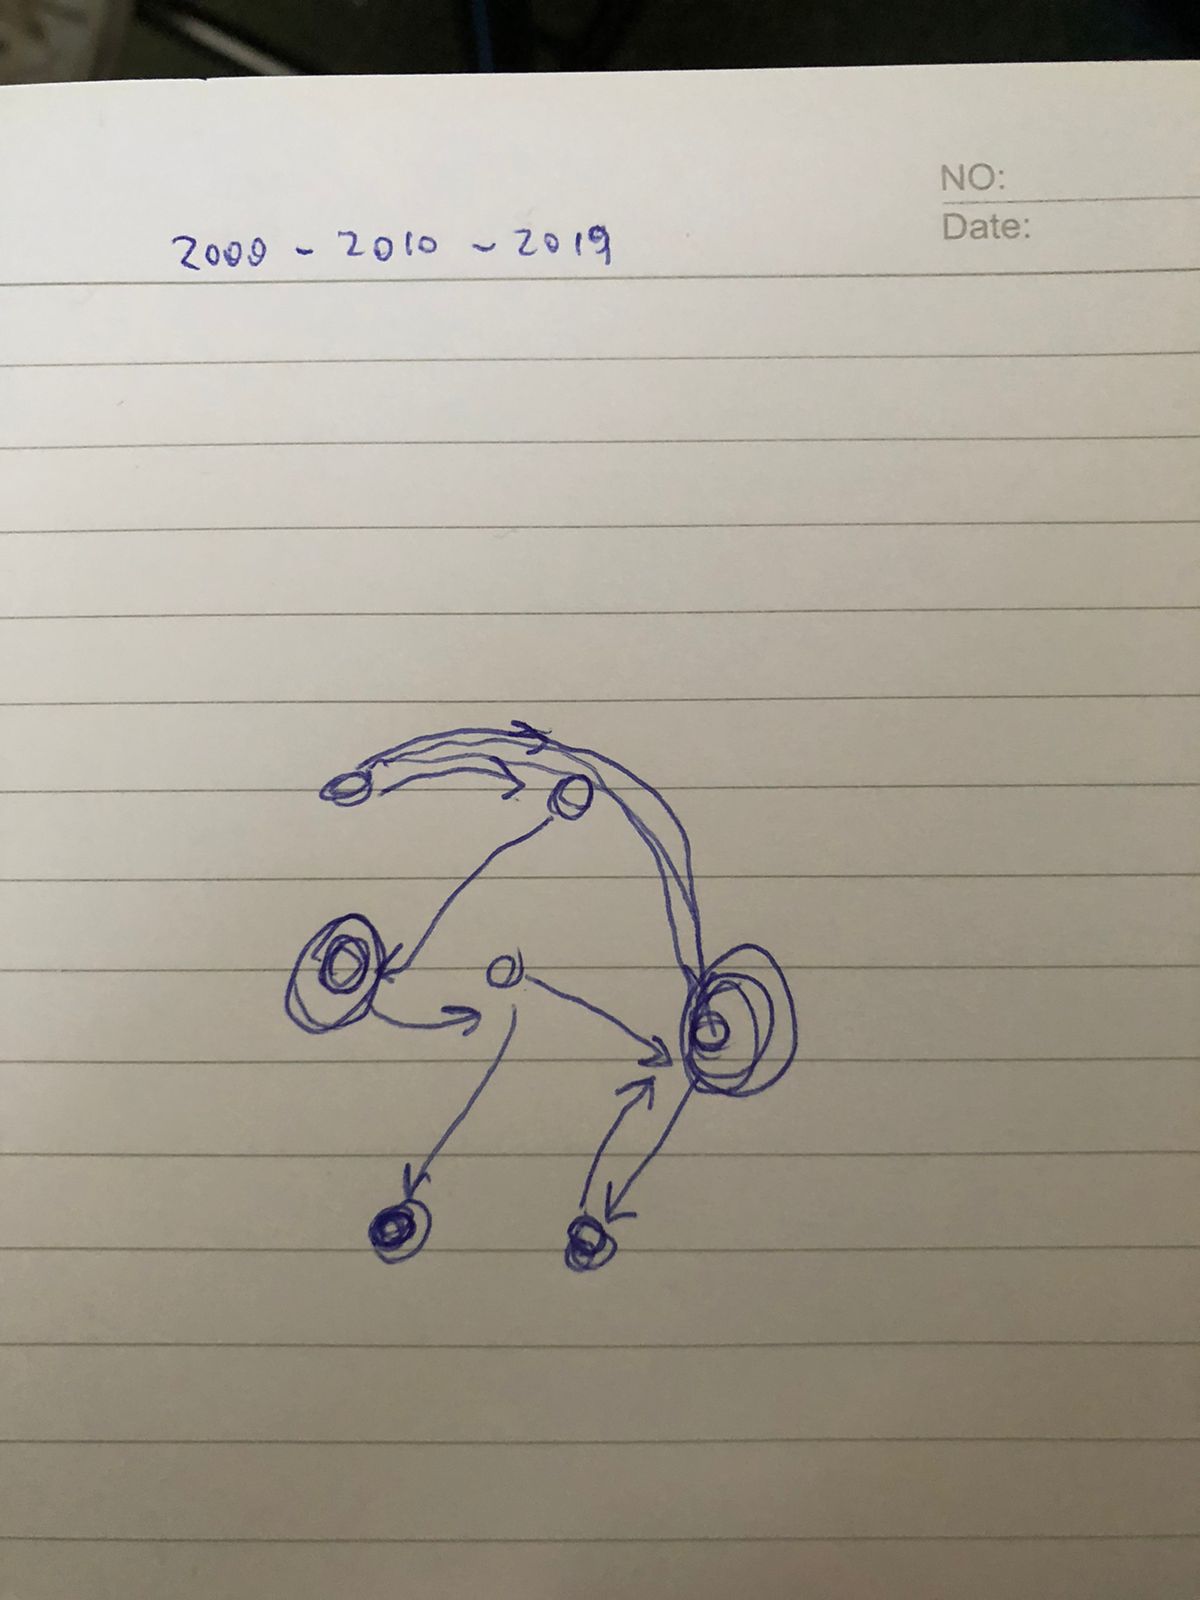 NO:
Date:
2000 - 2010 - 2019